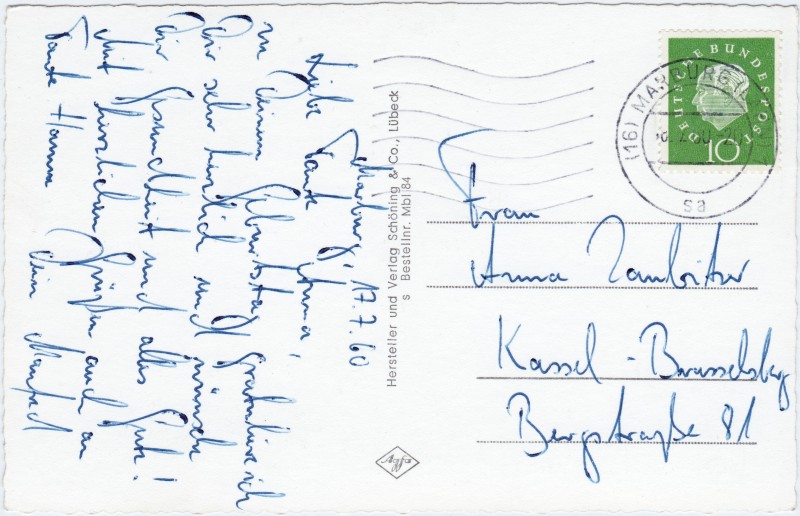 Marburg, 17.7.60
Liebe Tante Anna!
zu Deinem Geburtstag gratuliere ich
Dir sehr herzlich und wünsche
Dir Gesundheit und alles Gute!
Mit herzlichen Grüßen auch an
Tante Hanna dein Manfred
Hersteller und Verlag Schöning & Co., Lübeck
s Bestellnr. Mbl 84
Agfa
DEUTSCHE BUNDESPOST
10
(16) MARBURG
sa
Frau
Anna
Kassel - Brasselsberg
Bergstraße 81